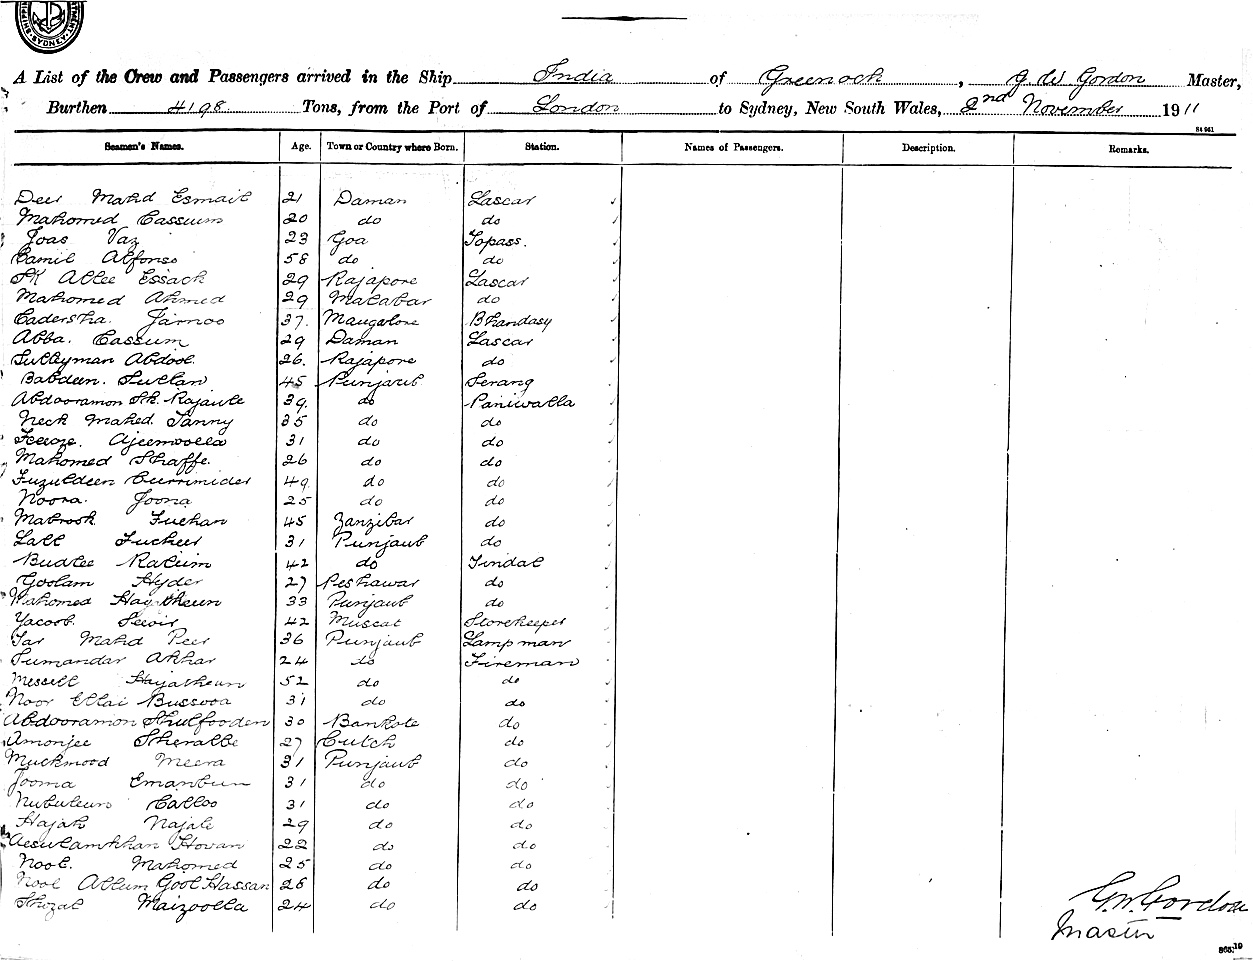 SYDNEY
A List of the Crew and Passengers arrived in the Ship India of Greenock, G. W. Gordon Master,
Burthen 4198 Tons, from the Port of London to Sydney, New South Wales, 2nd November 1911
St 961
Seamen's Names. Age. Town or Country where Born. Station. Names of Passengers. Description. Remarks.
Deer Mahd Esmail 21 Daman Lascar
Mahomed Cassum 20 do do
Joas Vaz 23 Goa Topass.
Camil Alfonso 58 do do
SK Allee Essack 29 Rajapore Lascar
Mahomed Ahmed 29 Malabar do
Cadersha. Jamoo 37. Mangalore Bhandary
Abba. Cassum 29 Daman Lascar
Sulleyman Abdool. 26. Rajapore do
Babdeen. Sultan 45 Punjaub Serang
Abdooramon Sk. Rajaule 39. do Paniwalla
Neck Mahed. Tanny 35 do do
Feroze. Ajeemoolla 31 do do
Mahomed Shaffe. 26 do do
Fuzuldeen Currimider 49. do do
Noora. Jooma 25 do do
Mabrook Fuehan 45 Zanzibar do
Lall Fucheer 31 Punjaub do
Budlee Rahim 42 do Tindal
Goolam Hyder 27 Peshawar do
Mahomed Hayatheun 33 Punjaub do
Yacoob. 42 Muscat Storekeeper
Jar Mahd Peer 36 Punjaub Lampman
Sumandar Akhar 24 do Fireman
Messell Hayatheun 52 do do
Noor Ellai Bussooa 31 do do
Abdooramon Shulfooden 30 Bankote do
Amonjee Sheralle 27 Cutch do
Muckmood Meera 31 Punjaub do
Jooma Emambun 31 do do
Nubuleum Calloo 31 do do
Hajah Najale 29 do do
Hovan 22 do do
Nool. Mahomed 25 do do
Nool Allum Gool Hassan 28 do do
Shozal Maizoolla 24 do do
G.W. Gordon
Master